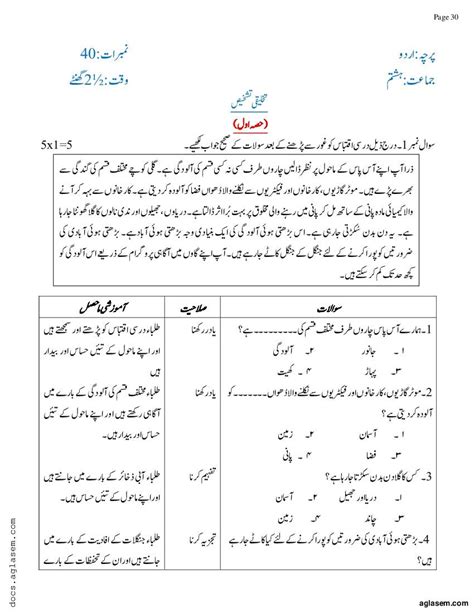 Page 30
پرچہ: اردو
نمبرات: 40
جماعت: ہشتم
وقت: 2½ گھنٹے
تخلیقی تشخیص
(حصہ اول)
سوال نمبر 1۔ درج ذیل درسی اقتباس کو غور سے پڑھنے کے بعد سولات کے صحیح جواب لکھیے۔ 5x1=5
ذرا آپ اپنے آس پاس کے ماحول پر نظر ڈالیں چاروں طرف کسی نہ کسی قسم کی آلودگی ہے۔ گلی کوچے مختلف قسم کی گندگی سے
بھرے پڑے ہیں۔ موٹر گاڑیوں، کارخانوں اور فیکٹریوں سے نکلنے والا دھواں فضا کو آلودہ کرتا ہے۔ کارخانوں سے بہہ کر آنے
والا کیمیائی مادہ پانی کے ساتھ مل کر پانی میں رہنے والی مخلوق پر بہت بُرا اثر ڈالتا ہے۔ دریاوں، جھیلوں اور ندی نالوں کا گلا گھونٹا جا رہا
ہے۔ یہ دن بدن سکڑتی جا رہی ہے۔ اس آلودگی میں اضافے کی ایک بڑی وجہ بڑھتی ہوئی آبادی ہے۔ بڑھتی ہوئی آبادی کی
ضرورتیں کو پورا کرنے کے لئے جنگل کے جنگل کاٹے جا رہے ہیں۔ آپ اپنے گاوں میں آگاہی پروگرام کے ذریعے اس کو
کچھ حد تک کم کر سکتے ہیں۔
سوالات
صلاحیت
آموزشی ماحصل
1۔ ہمارے آس پاس چاروں طرف مختلف قسم کی ۔۔۔۔۔۔۔۔۔ ہے؟
۱۔ جانور ۲۔ آلودگی
۳۔ پہاڑ ۴۔ کھیت
یاد رکھنا
طلباء درسی اقتباس کو پڑھتے اور سمجھتے
ہیں اور اپنے ماحول کے تئیں حساس
اور بیدار ہیں۔
2۔ موٹر گاڑیوں، کارخانوں اور فیکٹریوں سے نکلنے والا دھواں ۔۔۔۔۔۔۔ کو
آلودہ کر دیتی ہے؟
۱۔ آسمان ۲۔ زمین
۳۔ فضا ۴۔ پانی
یاد رکھنا
طلباء مختلف قسم کی آلودگی کے بارے میں
آگاہی رکھتے ہیں اور اپنے ماحول کے تئیں
حساس اور بیدار ہیں۔
3۔ کس کا گلا دن بدن سکڑتا جا رہا ہے؟
۱۔ آسمان ۲۔ دریا اور جھیل
۳۔ چاند ۴۔ زمین
تفہیم کرنا
طلباء آبی ذخائر کے بارے میں جانتے ہیں
اور اپنے ماحول کے تئیں حساس اور بیدار
ہیں۔
4۔ بڑھتی ہوئی آبادی کی ضرورتیں کو پورا کرنے کے لئے کاٹے جا رہے
ہے؟
تجزیہ کرنا
طلباء جنگلات کے افادیت کے بارے میں
جانتے ہیں اور ان کے تحفظات کے بارے
docs.aglasem.com
aglasem.com